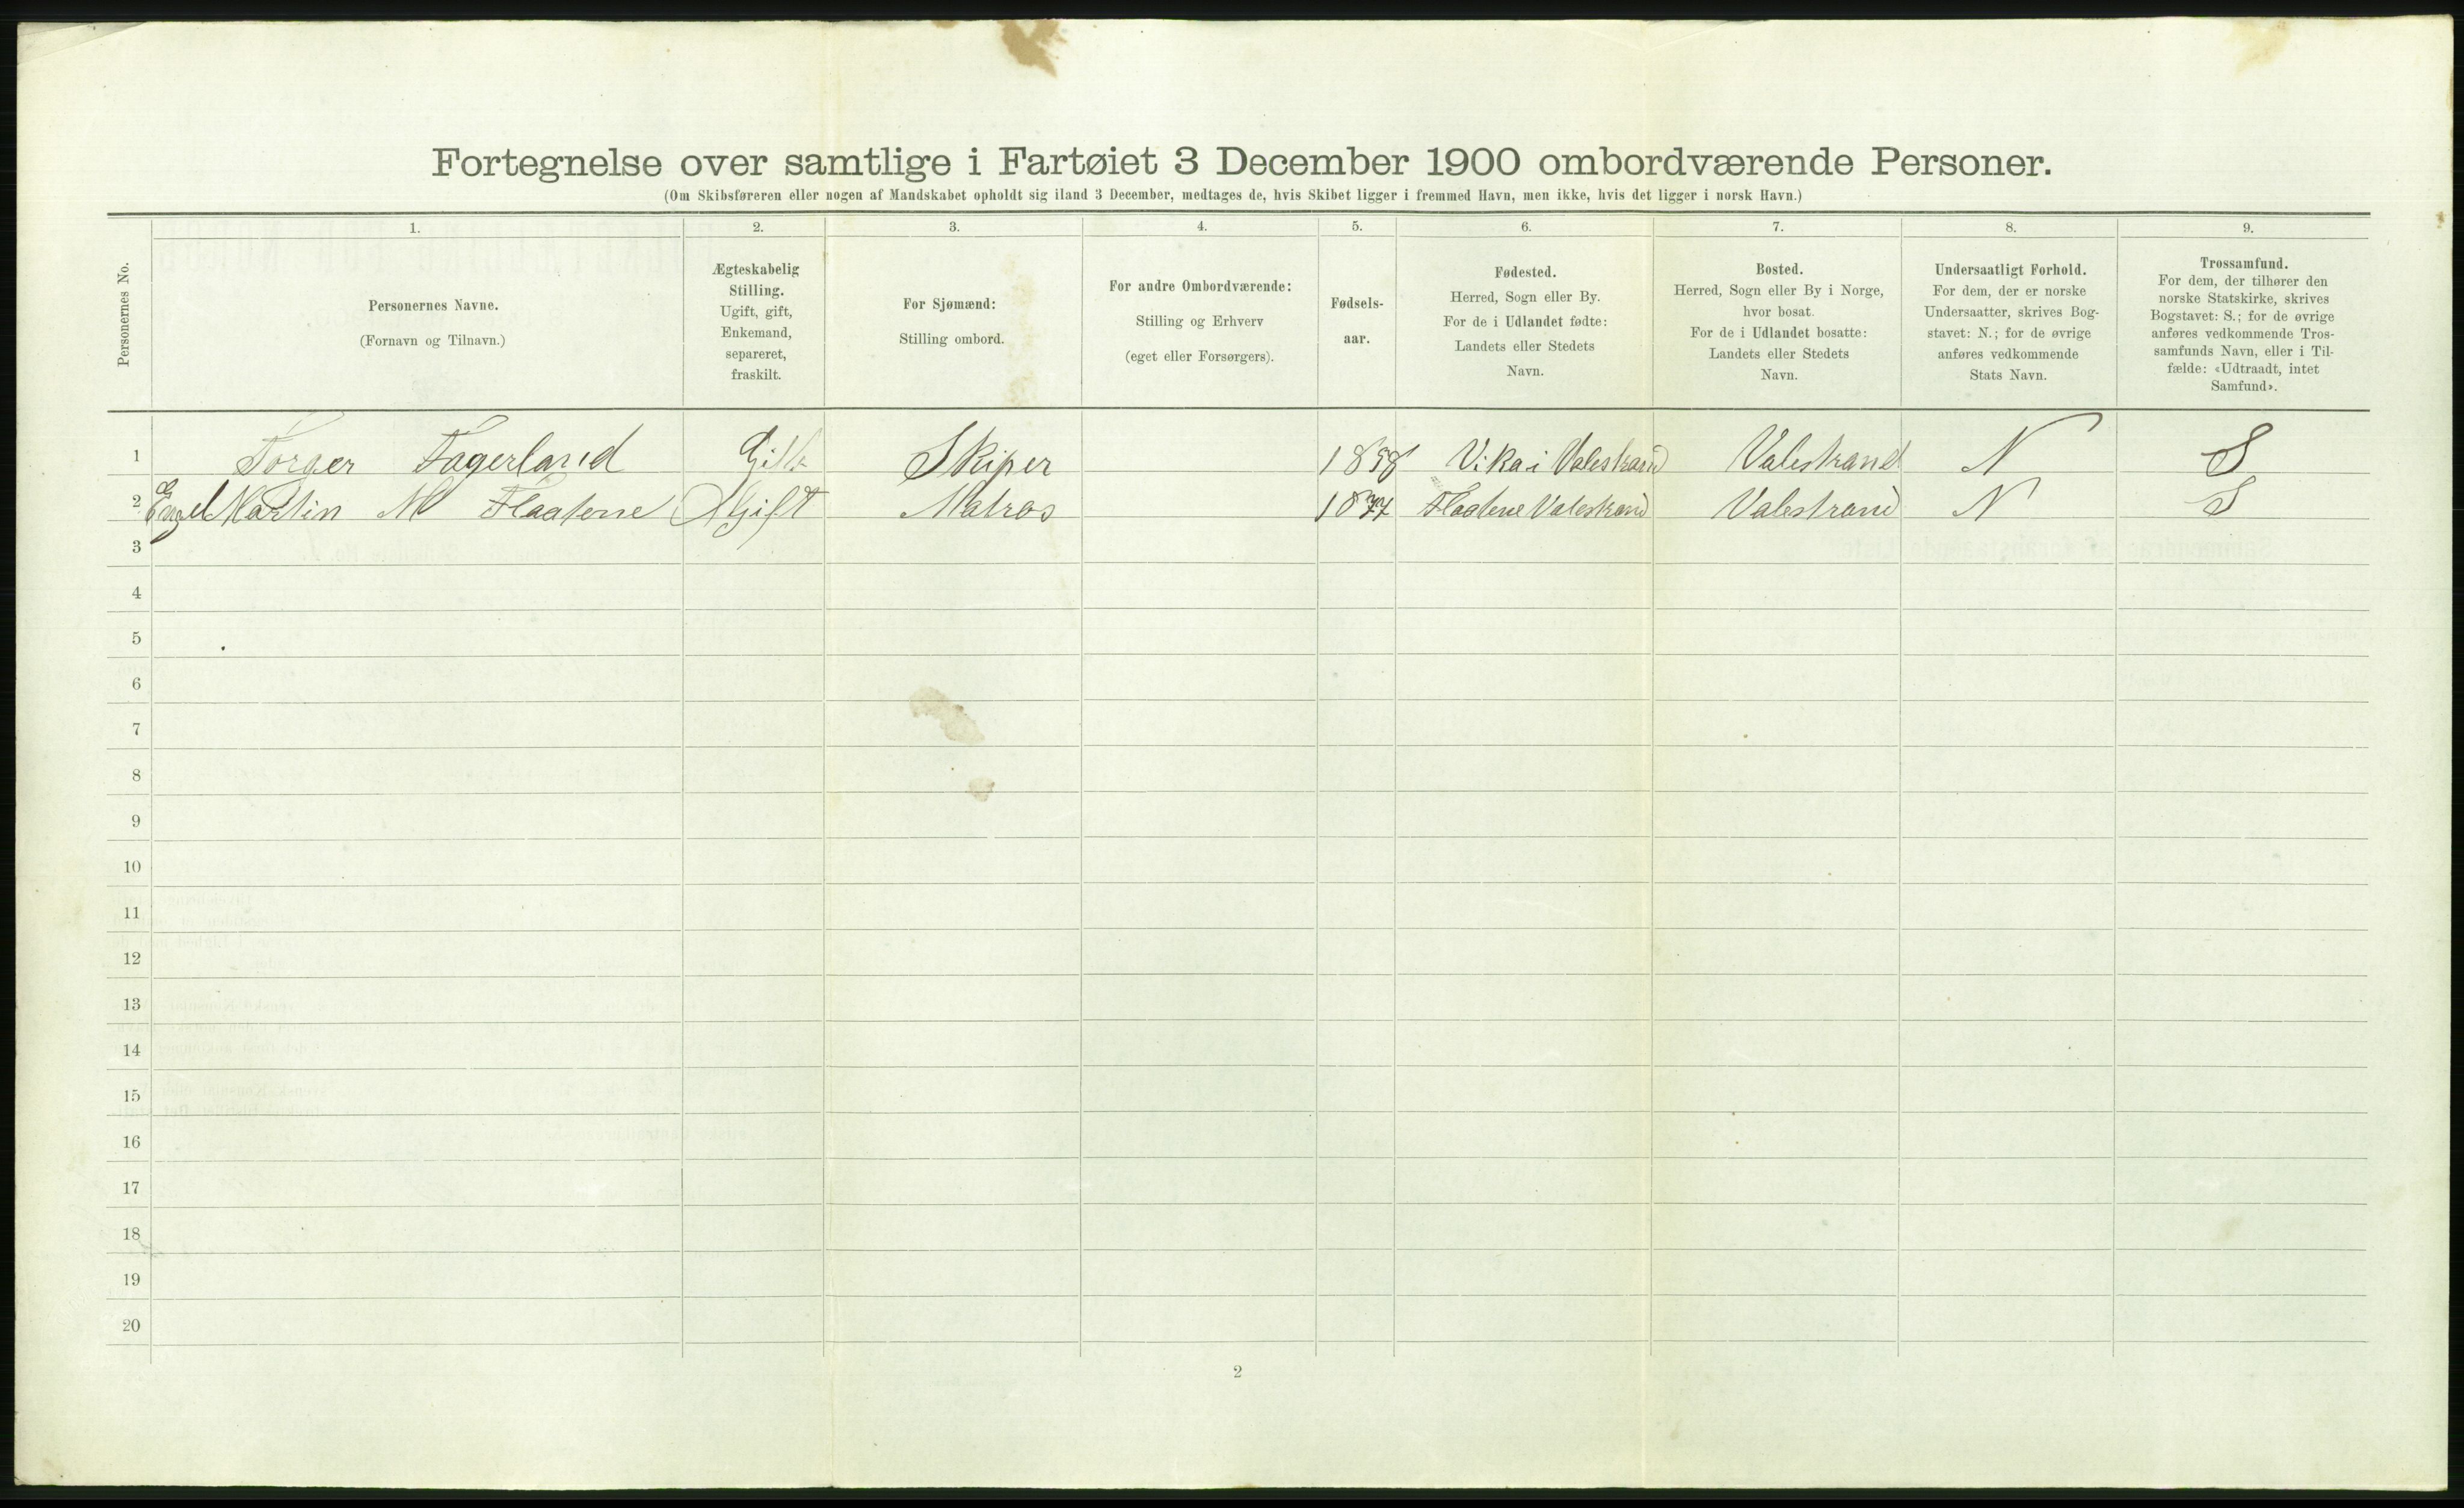 Fortegnelse over samtlige i Fartøiet 3 December 1900 ombordværende Personer.
(Om Skibsføreren eller nogen af Mandskabet opholdt sig iland 3 December, medtages de, hvis Skibet ligger i fremmed Havn, men ikke, hvis det ligger i norsk Havn.)
Personernes No.
1.
Personernes Navne.
(Fornavn og Tilnavn.)
2.
Ægteskabelig
Stilling.
Ugift, gift,
Enkemand,
separeret,
fraskilt.
3.
For Sjømænd:
Stilling ombord.
4.
For andre Ombordværende:
Stilling og Erhverv
(eget eller Forsørgers).
5.
Fødsels-
aar.
6.
Fødested.
Herred, Sogn eller By.
For de i Udlandet fødte:
Landets eller Stedets
Navn.
7.
Bosted.
Herred, Sogn eller By i Norge,
hvor bosat.
For de i Udlandet bosatte:
Landets eller Stedets
Navn.
8.
Undersaatligt Forhold.
For dem, der er norske
Undersaatter, skrives Bog-
stavet: N.; for de øvrige
anføres vedkommende
Stats Navn.
9.
Trossamfund.
For dem, der tilhører den
norske Statskirke, skrives
Bogstavet: S.; for de øvrige
anføres vedkommende Tros-
samfunds Navn, eller i Til-
fælde: «Udtraadt, intet
Samfund».
1 Torger Fagerland Gift Skiper 1858 Vika i Valestrand Valestrand N S
2 Engel Martin M Flaatene Ugift Matros Flaatene Valestrand Valestrand N S
3
4
5
6
7
8
9
10
11
12
13
14
15
16
17
18
19
20
2